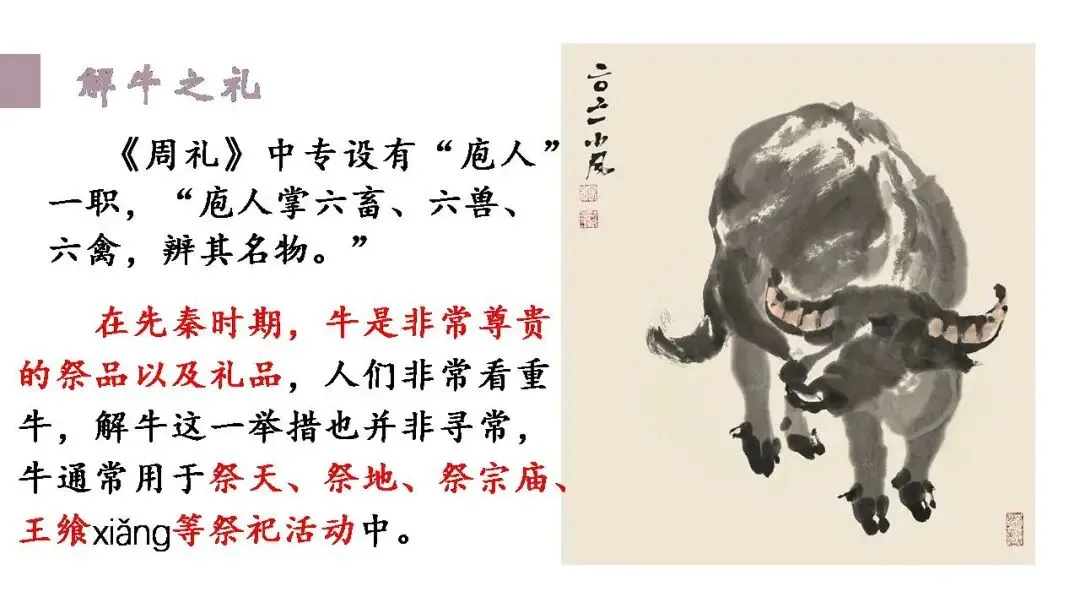 解牛之礼
《周礼》中专设有“庖人”
一职，“庖人掌六畜、六兽、
六禽，辨其名物。”
在先秦时期，牛是非常尊贵
的祭品以及礼品，人们非常看重
牛，解牛这一举措也并非寻常，
牛通常用于祭天、祭地、祭宗庙、
王飨xiǎng等祭祀活动中。
小风